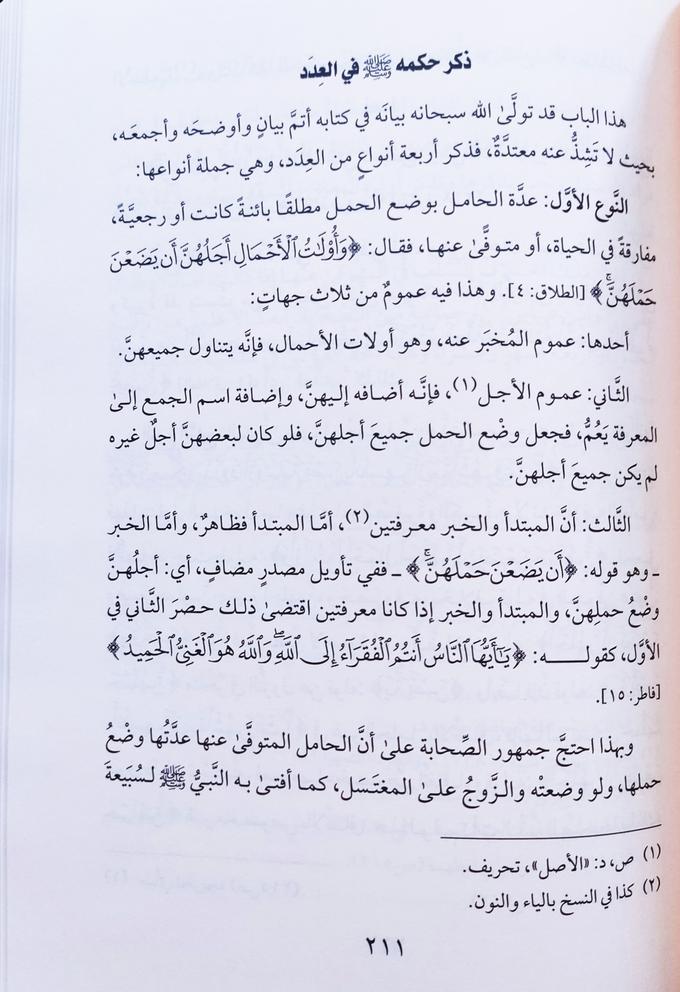 ذكر حكمه ﷺ في العِدَد
هذا الباب قد تولَّىٰ الله سبحانه بيانَه في كتابه أتمَّ بيانٍ وأوضحَه وأجمعَه،
بحيث لا تَشِذُّ عنه معتدَّةٌ، فذكر أربعة أنواعٍ من العِدَد، وهي جملة أنواعها:
النَّوع الأوَّل: عدَّة الحامل بوضع الحمل مطلقًا بائنةً كانت أو رجعيَّةً،
مفارقةً في الحياة، أو متوفًّىٰ عنها، فقال: ﴿وَأُوْلَٰتُ ٱلْأَحْمَالِ أَجَلُهُنَّ أَن يَضَعْنَ
حَمْلَهُنَّۚ﴾ [الطلاق: ٤]. وهذا فيه عمومٌ من ثلاث جهاتٍ:
أحدها: عموم المُخبَر عنه، وهو أولات الأحمال، فإنَّه يتناول جميعهنَّ.
الثَّاني: عموم الأجل(١)، فإنَّه أضافه إليهنَّ، وإضافة اسم الجمع إلىٰ
المعرفة يَعُمُّ، فجعل وضْع الحمل جميعَ أجلهنَّ، فلو كان لبعضهنَّ أجلٌ غيره
لم يكن جميعَ أجلهنَّ.
الثَّالث: أنَّ المبتدأ والخبر معرفتين(٢)، أمَّا المبتدأ فظاهرٌ، وأمَّا الخبر
ـ وهو قوله: ﴿أَن يَضَعْنَ حَمْلَهُنَّۚ﴾ ـ ففي تأويل مصدرٍ مضافٍ، أي: أجلُهنَّ
وضْعُ حملِهنَّ، والمبتدأ والخبر إذا كانا معرفتين اقتضىٰ ذلك حصْرَ الثَّاني في
الأوَّل، كقولـــه: ﴿يَٰٓأَيُّهَا ٱلنَّاسُ أَنتُمُ ٱلْفُقَرَآءُ إِلَى ٱللَّهِۖ وَٱللَّهُ هُوَ ٱلْغَنِىُّ ٱلْحَمِيدُ﴾
[فاطر: ١٥].
وبهذا احتجَّ جمهور الصِّحابة علىٰ أنَّ الحامل المتوفَّىٰ عنها عدَّتُها وضْعُ
حملها، ولو وضعتْه والزَّوجُ علىٰ المغتسَل، كما أفتىٰ به النَّبيُّ ﷺ لسُبَيعةَ
(١) ص، د: «الأصل»، تحريف.
(٢) كذا في النسخ بالياء والنون.
٢١١